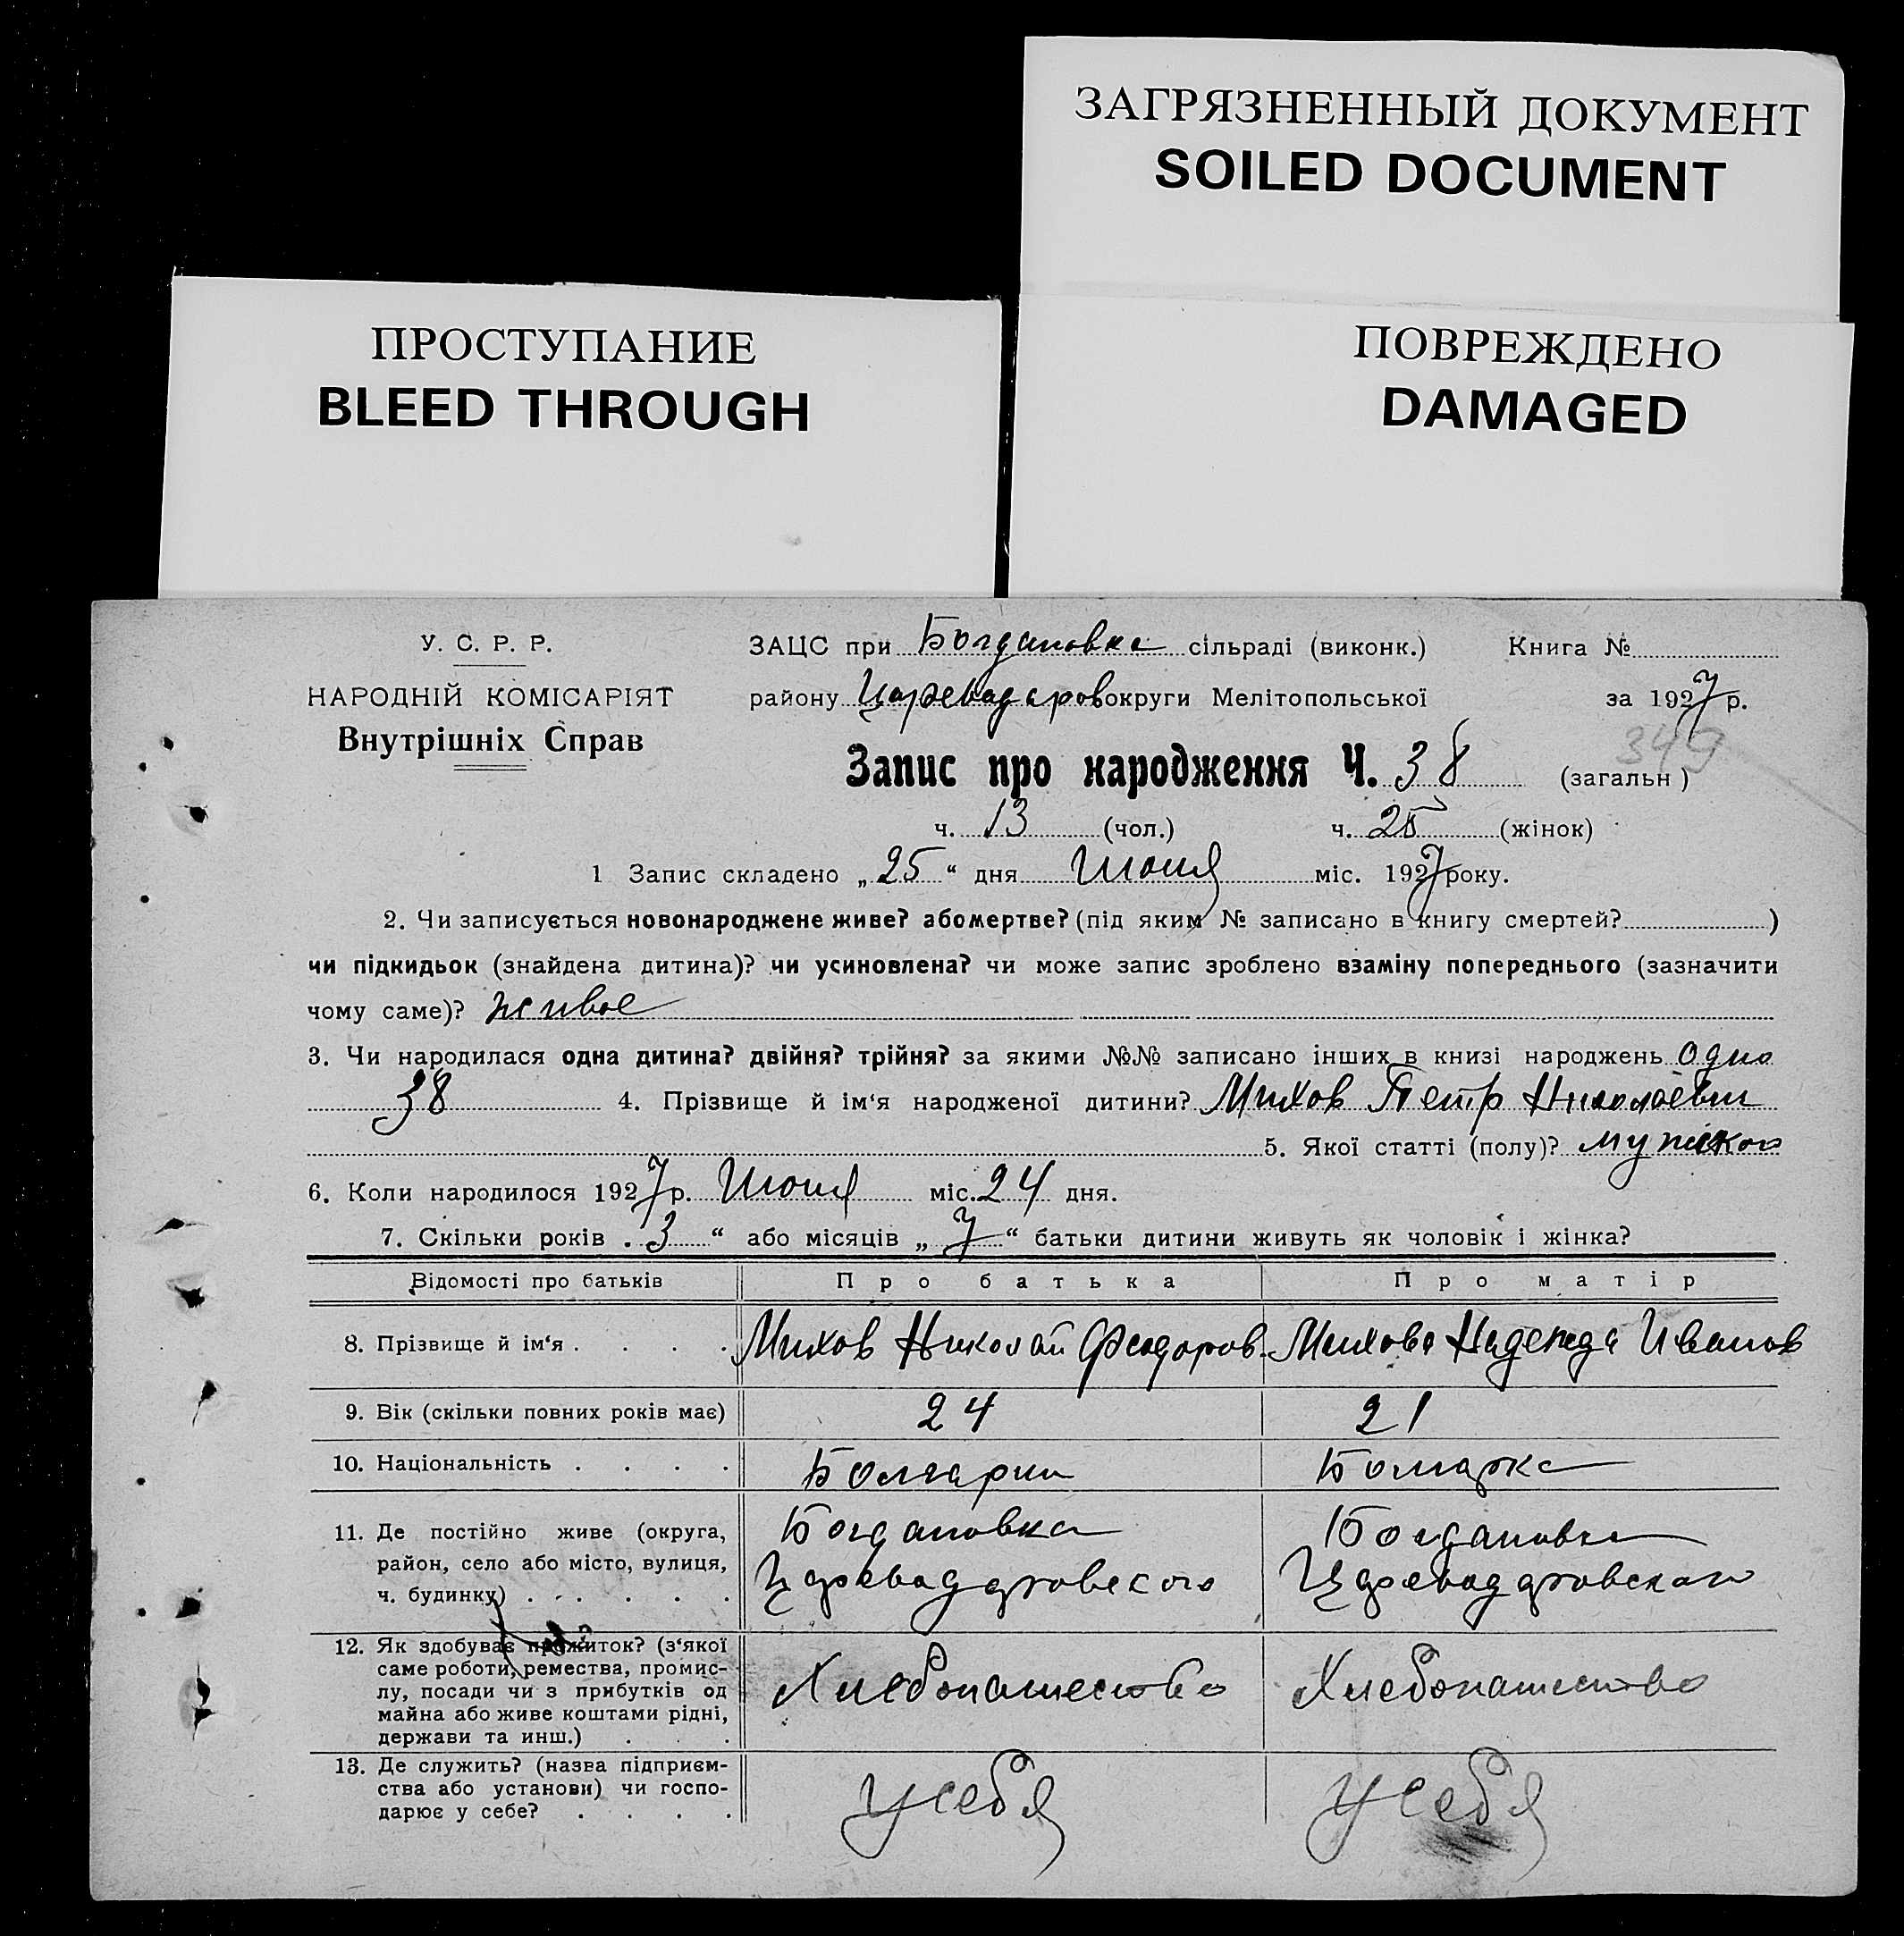 ЗАГРЯЗНЕННЫЙ ДОКУМЕНТ
SOILED DOCUMENT
ПРОСТУПАНИЕ
BLEED THROUGH
ПОВРЕЖДЕНО
DAMAGED
У. С. Р. Р.
НАРОДНІЙ КОМІСАРІЯТ
Внутрішніх Справ
ЗАЦС при Богдановка сільраді (виконк.) Книга №
району Царевадаров округи Мелітопольської за 1927 р.
349
Запис про народження Ч. 38 (загальн )
ч. 13 (чол.) ч. 25 (жінок)
1 Запис складено „ 25 “ дня Июня міс. 1927 року.
2. Чи записується новонароджене живе? або мертве? (під яким № записано в книгу смертей? )
чи підкидьок (знайдена дитина)? чи усиновлена? чи може запис зроблено взаміну попереднього (зазначити
чому саме)? живое
3. Чи народилася одна дитина? двійня? трійня? за якими №№ записано інших в книзі народжень одно
38 4. Прізвище й ім‘я народженої дитини? Михов Петр Николаевич
5. Якої статті (полу)? мужского
6. Коли народилося 1927 р. Июня міс. 24 дня.
7. Скільки років „ 3 “ або місяців „ 7 “ батьки дитини живуть як чоловік і жінка?
Відомості про батьків Про батька Про матір
8. Прізвище й ім‘я . . . . Михов Николай Феодоров. Михова Надежда Иванов
9. Вік (скільки повних років має) 24 21
10. Національність . . . . Болгарин Болгарка
11. Де постійно живе (округа,
район, село або місто, вулиця,
ч. будинку) . . . . . .
Богдановка
Царевадаровского
Богдановка
Царевадаровского
12. Як здобуває прожиток? (з‘якої
саме роботи, ремества, промис-
лу, посади чи з прибутків од
майна або живе коштами рідні,
держави та инш.) . . .
Хлебопашество
Хлебопашество
13. Де служить? (назва підприєм-
ства або установи) чи госпо-
дарює у себе? . . . .
у себя
у себя